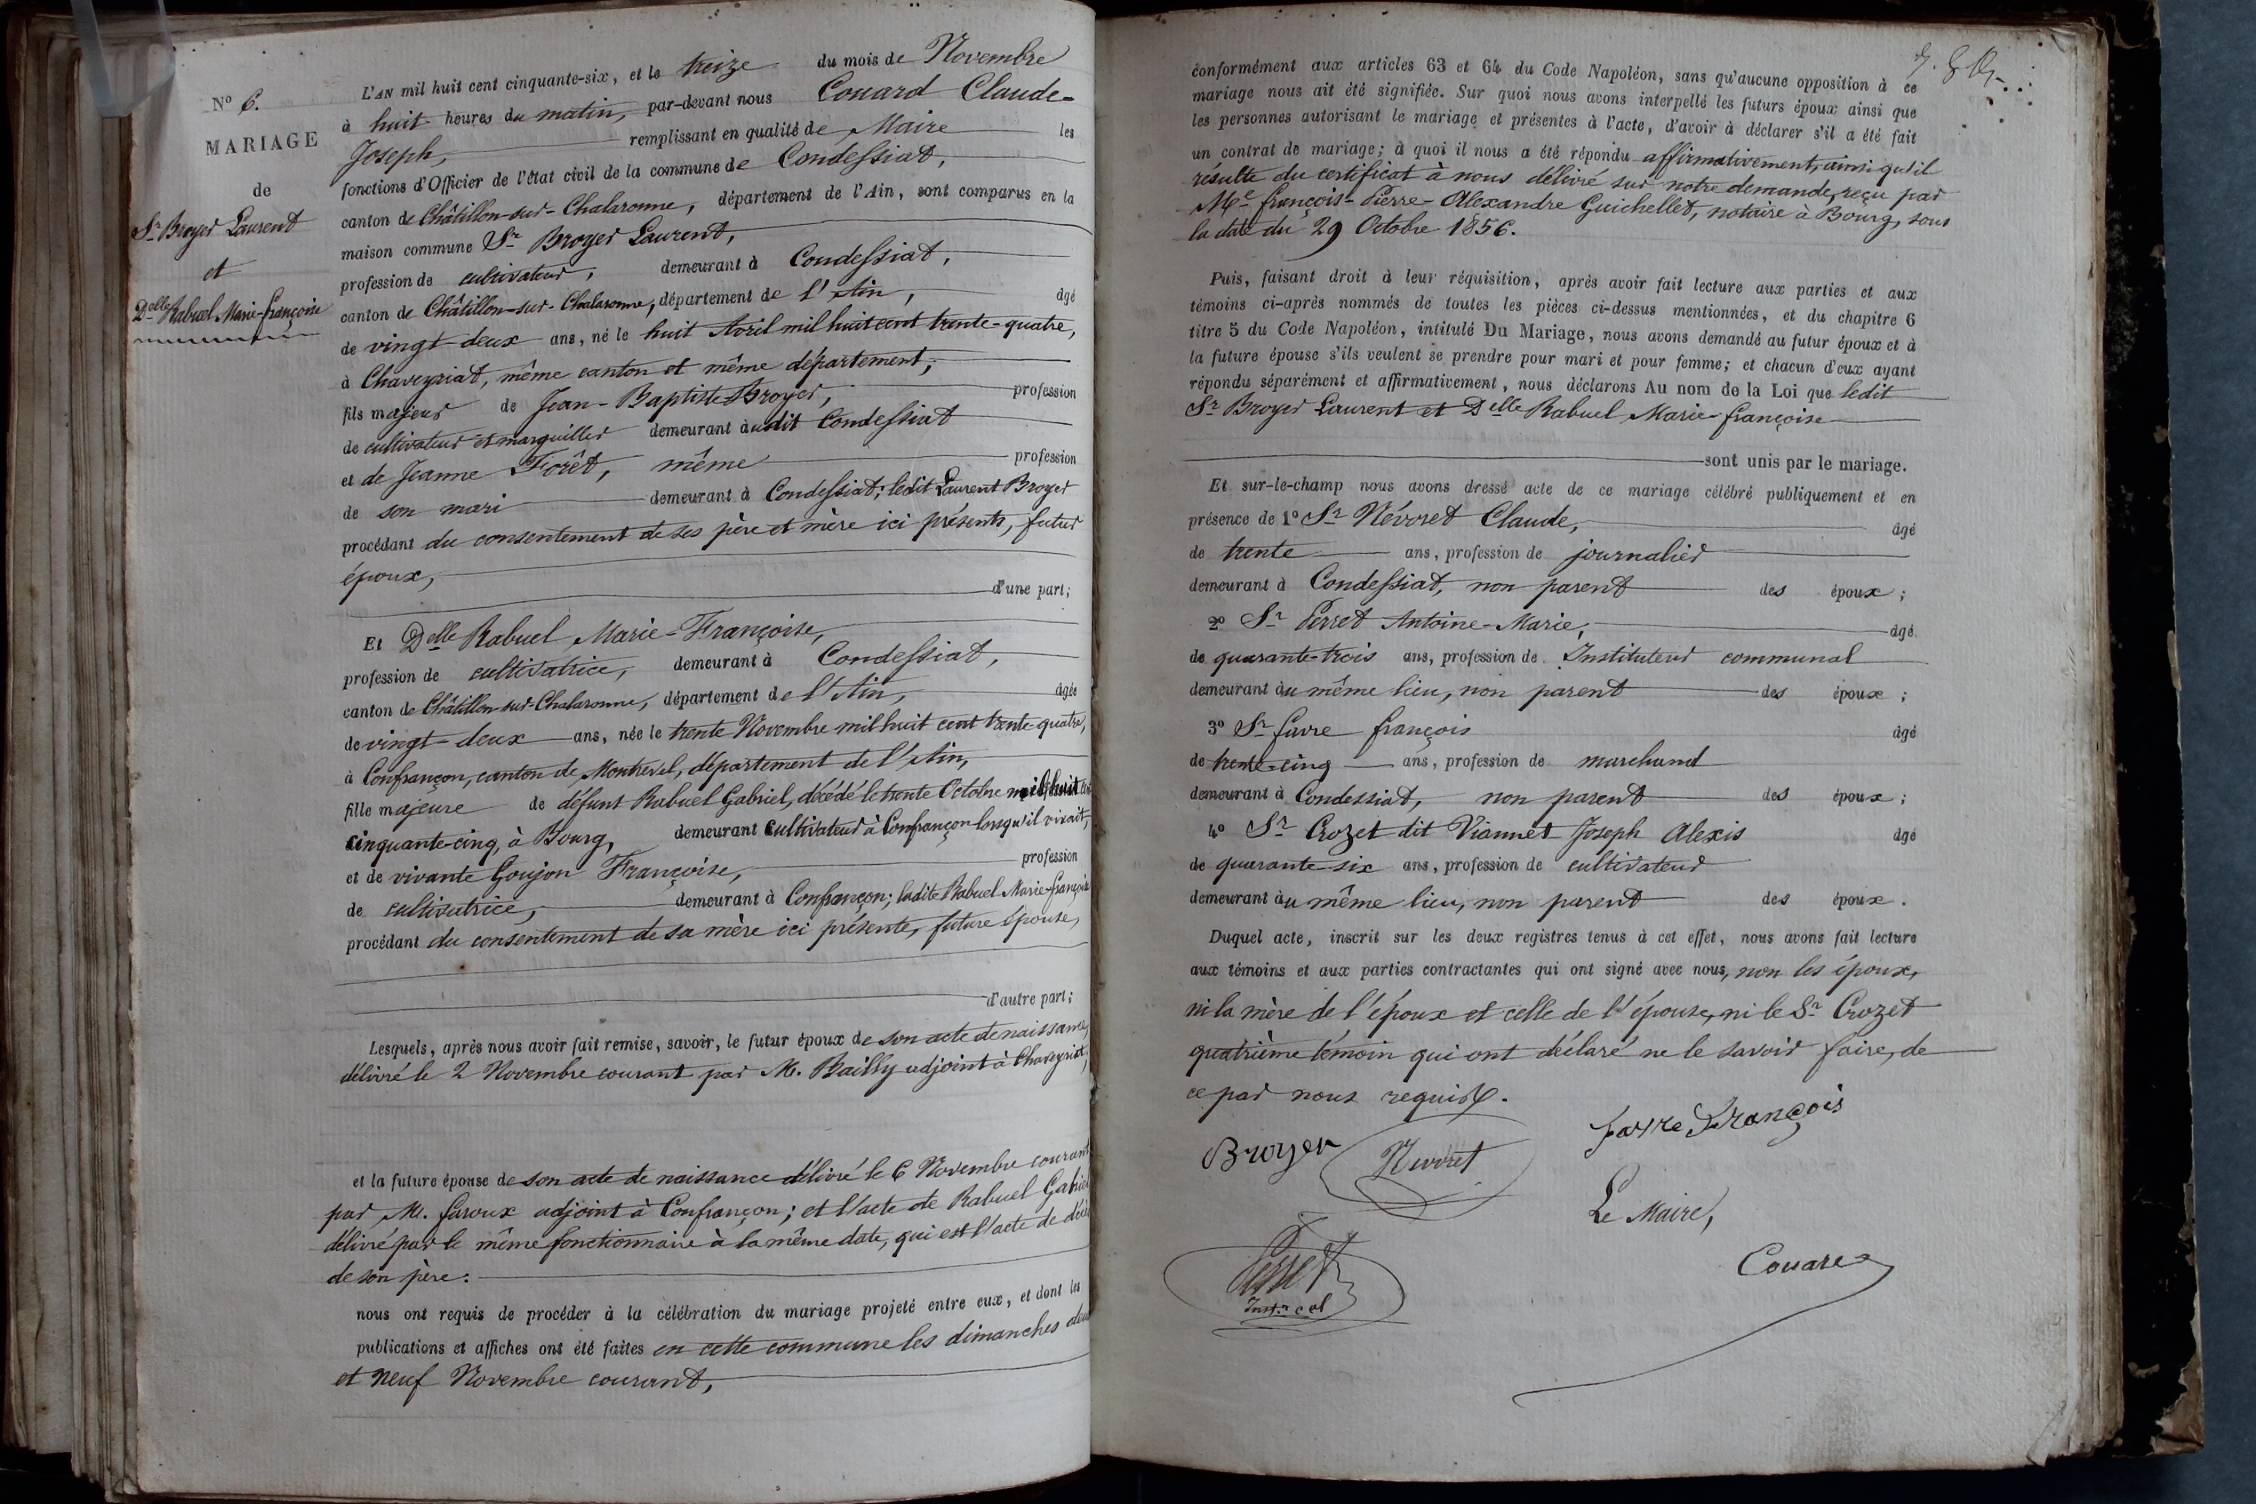 N° 6.
MARIAGE
de
Sr Broyer Laurent
et
Delle Rabuel Marie-françoise
L'AN mil huit cent cinquante-six, et le treize du mois de Novembre
à huit heures du matin, par-devant nous Couard Claude-
Joseph, remplissant en qualité de Maire les
fonctions d'Officier de l'état civil de la commune de Condessiat,
canton de Châtillon-sur-Chalaronne, département de l'Ain, sont comparus en la
maison commune Sr Broyer Laurent,
profession de cultivateur, demeurant à Condessiat,
canton de Châtillon-sur-Chalaronne, département de l'Ain, âgé
de vingt-deux ans, né le huit Avril mil huit cent trente-quatre,
à Chaveyriat, même canton et même département,
fils majeur de Jean-Baptiste Broyer, profession
de cultivateur et marguiller demeurant audit Condessiat
et de Jeanne Forêt, même profession
de son mari demeurant à Condessiat; ledit Laurent Broyer
procédant du consentement de ses père et mère ici présents, futur
époux,
d'une part;
Et Delle Rabuel Marie-Françoise,
profession de cultivatrice, demeurant à Condessiat,
canton de Châtillon-sur-Chalaronne, département de l'Ain, âgée
de vingt-deux ans, née le trente Novembre mil huit cent trente-quatre,
à Confrançon, canton de Montrevel, département de l'Ain,
fille majeure de défunt Rabuel Gabriel, décédé le trente Octobre mil huit cent
cinquante-cinq, à Bourg, demeurant cultivateur à Confrançon lorsqu'il vivait,
et de vivante Goujon Françoise, profession
de cultivatrice, demeurant à Confrançon; ladite Rabuel Marie-françoise
procédant du consentement de sa mère ici présente, future épouse,
d'autre part;
Lesquels, après nous avoir fait remise, savoir, le futur époux de son acte de naissance,
délivré le 2 Novembre courant par M. Bailly adjoint à Chaveyriat;
et la future épouse de son acte de naissance délivré le 6 Novembre courant
par M. faroux adjoint à Confrançon; et l'acte de Rabuel Gabriel
délivré par le même fonctionnaire à la même date, qui est l'acte de décès
de son père:
nous ont requis de procéder à la célébration du mariage projeté entre eux, et dont les
publications et affiches ont été faites en cette commune les dimanches deux
et neuf Novembre courant,
conformément aux articles 63 et 64 du Code Napoléon, sans qu'aucune opposition à ce
mariage nous ait été signifiée. Sur quoi nous avons interpellé les futurs époux ainsi que
les personnes autorisant le mariage et présentes à l'acte, d'avoir à déclarer s'il a été fait
un contrat de mariage; à quoi il nous a été répondu affirmativement, ainsi qu'il
résulte du certificat à nous délivré sur notre demande, reçu par
Me françois-Pierre-Alexandre Guichellet, notaire à Bourg, sous
la date du 29 Octobre 1856.
Puis, faisant droit à leur réquisition, après avoir fait lecture aux parties et aux
témoins ci-après nommés de toutes les pièces ci-dessus mentionnées, et du chapitre 6
titre 5 du Code Napoléon, intitulé Du Mariage, nous avons demandé au futur époux et à
la future épouse s'ils veulent se prendre pour mari et pour femme; et chacun d'eux ayant
répondu séparément et affirmativement, nous déclarons Au nom de la Loi que ledit
Sr Broyer Laurent et Delle Rabuel Marie-françoise
sont unis par le mariage.
Et sur-le-champ nous avons dressé acte de ce mariage célébré publiquement et en
présence de 1° Sr Névoret Claude, âgé
de trente ans, profession de journalier
demeurant à Condessiat, non parent des époux;
2° Sr Perret Antoine-Marie, âgé
de quarante-trois ans, profession de Instituteur communal
demeurant au même lieu, non parent des époux;
3° Sr favre françois âgé
de trente-cinq ans, profession de marchand
demeurant à Condessiat, non parent des époux;
4° Sr Crozet dit Viannet Joseph Alexis âgé
de quarante-six ans, profession de cultivateur
demeurant au même lieu, non parent des époux.
Duquel acte, inscrit sur les deux registres tenus à cet effet, nous avons fait lecture
aux témoins et aux parties contractantes qui ont signé avec nous, non les époux,
ni la mère de l'époux et celle de l'épouse, ni le Sr Crozet
quatrième témoin qui ont déclaré ne le savoir faire, de
ce par nous requis.
Broyer Nevoret favre François
Le Maire,
Perret Couard
Instr cal